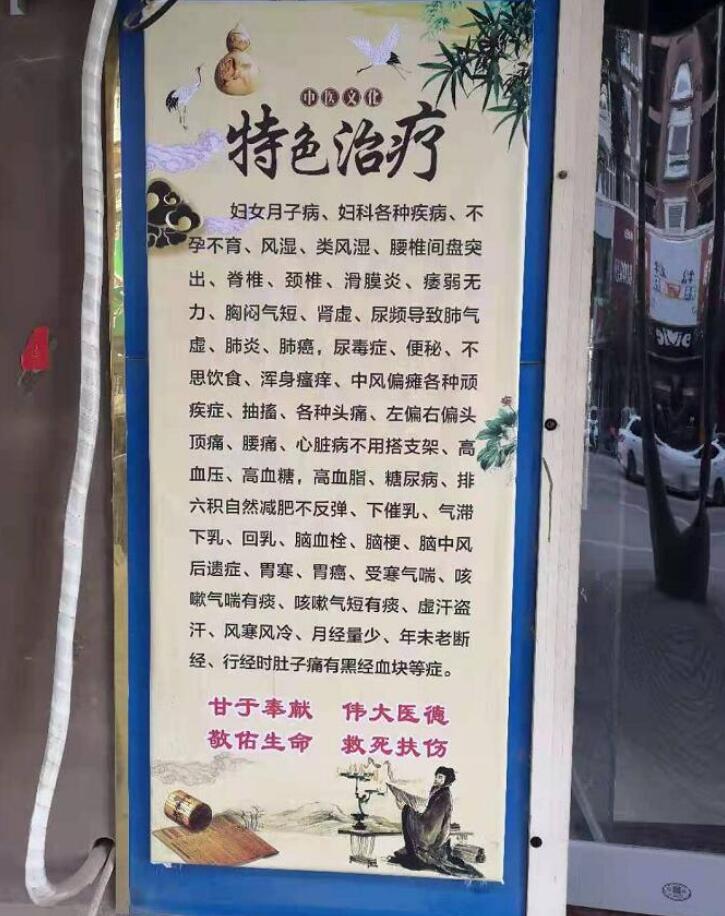 中医文化
特色治疗
妇女月子病、妇科各种疾病、不
孕不育、风湿、类风湿、腰椎间盘突
出、脊椎、颈椎、滑膜炎、痿弱无
力、胸闷气短、肾虚、尿频导致肺气
虚、肺炎、肺癌，尿毒症、便秘、不
思饮食、浑身瘙痒、中风偏瘫各种顽
疾症、抽搐、各种头痛、左偏右偏头
顶痛、腰痛、心脏病不用搭支架、高
血压、高血糖，高血脂、糖尿病、排
六积自然减肥不反弹、下催乳、气滞
下乳、回乳、脑血栓、脑梗、脑中风
后遗症、胃寒、胃癌、受寒气喘、咳
嗽气喘有痰、咳嗽气短有痰、虚汗盗
汗、风寒风冷、月经量少、年未老断
经、行经时肚子痛有黑经血块等症。
甘于奉献 伟大医德
敬佑生命 救死扶伤